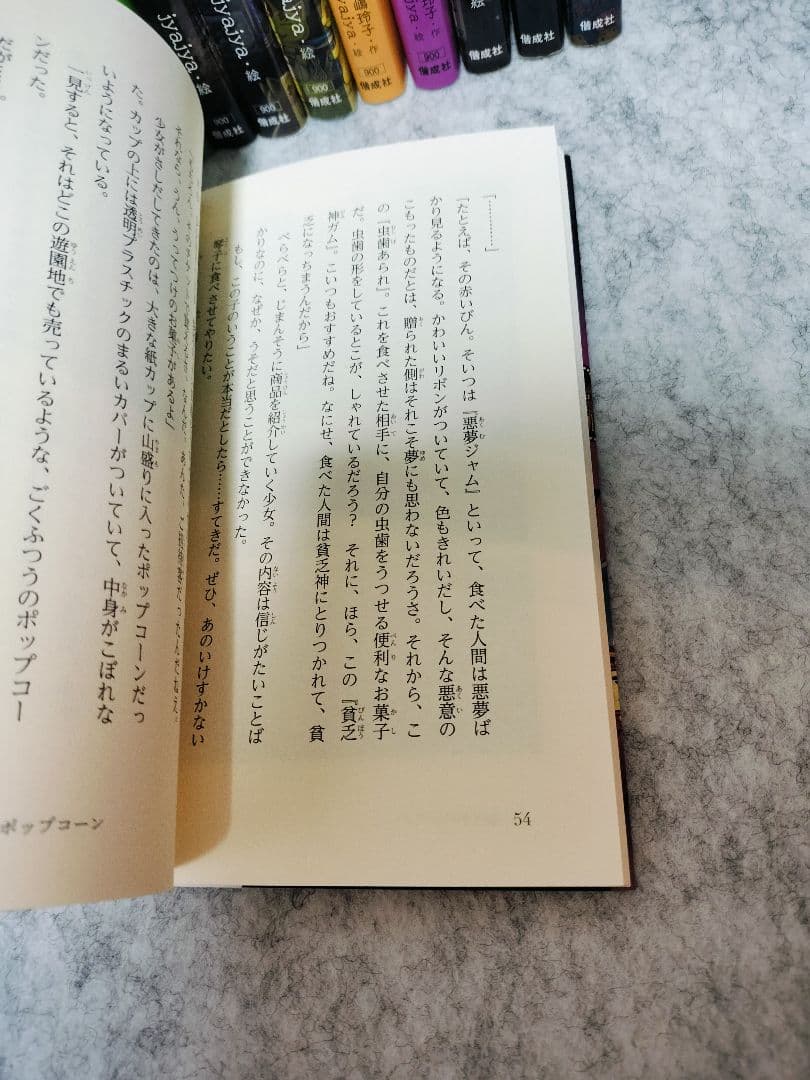 jyajya・絵
偕成社
jyajya・絵
900
偕成社
jyajya・絵
900
偕成社
嶋玲子・作
jyajya・絵
900
偕成社
玲子・作
絵
900
偕成社
絵
900
偕成社
900
偕成社
偕成社
「…………」
「たとえば、その赤いびん。そいつは『悪夢ジャム』といって、食べた人間は悪夢ば
かり見るようになる。かわいいリボンがついていて、色もきれいだし、そんな悪意の
こもったものだとは、贈られた側はそれこそ夢にも思わないだろうさ。それから、こ
の『虫歯あられ』。これを食べさせた相手に、自分の虫歯をうつせる便利なお菓子
だ。虫歯の形をしているとこが、しゃれているだろう？　それに、ほら、この『貧乏
神ガム』。こいつもおすすめだね。なにせ、食べた人間は貧乏神にとりつかれて、貧
乏になっちまうんだから」
べらべらと、じまんそうに商品を紹介していく少女。その内容は信じがたいことば
かりなのに、なぜか、うそだと思うことができなかった。
もし、この子のいうことが本当だとしたら……すてきだ。ぜひ、あのいけすかない
琴子に食べさせてやりたい。
54
お菓子があるよ」
少女がさしだしてきたのは、大きな紙カップに山盛りに入ったポップコーンだっ
た。カップの上には透明プラスチックのまるいカバーがついていて、中身がこぼれな
いようになっている。
一見すると、それはどこの遊園地でも売っているような、ごくふつうのポップコー
ンだった。
ポップコーン